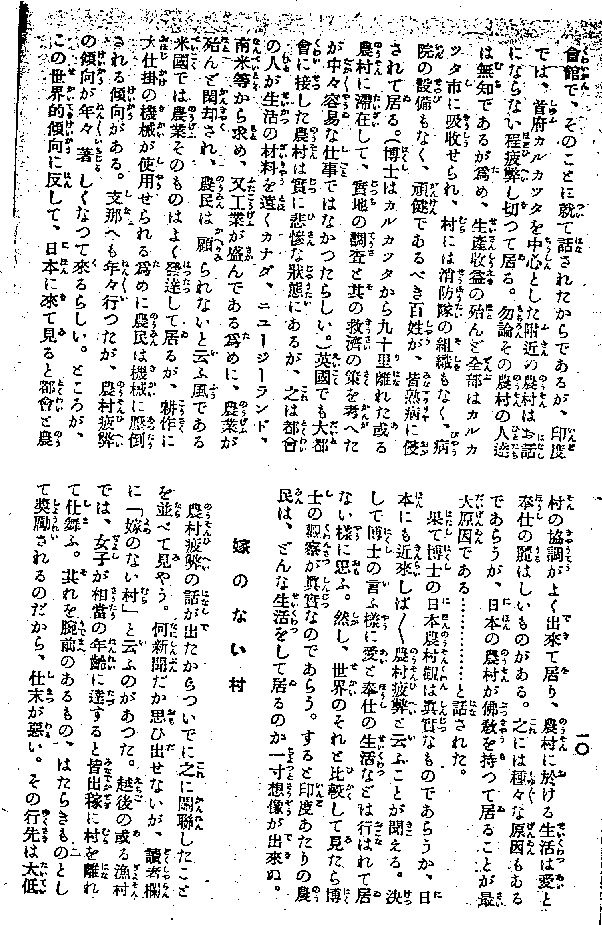 會館で、そのことに就て話されたからであるが、印度
では、首府カルカツタを中心とした附近の農村はお話
にならない程疲弊し切つて居る。勿論その農村の人達
は無知であるが爲め、生產收益の殆んど全部はカルカ
ツタ市に吸收せられ、村には消防隊の組織もなく、病
院の設備もなく、頑健であるべき百姓が、皆熱病に侵
されて居る。(博士はカルカツタから九十里離れた或る
農村に滯在して、實地の調査と其の救濟の策を考へた
が中々容易な仕事ではなかつたらしい。)英國でも大都
會に接した農村は實に悲慘な狀態にあるが、之は都會
の人が生活の材料を遠くカナダ、ニユージーランド、
南米等から求め、又工業が盛んである爲めに、農業が
殆んど閑却され、農民は顧られないと云ふ風である
米國では農業そのものはよく發達して居るが、耕作に
大仕掛の機械が使用せられる爲めに農民は機械に壓倒
される傾向がある。支那へも年々行つたが、農村疲弊
の傾向が年々著しくなつて來るらしい。ところが、
この世界的傾向に反して、日本に來て見ると都會と農
村の協調がよく出來て居り、農村に於ける生活は愛と
奉仕の麗はしいものがある。之には種々な原因もある
であらうが、日本の農村が佛敎を持つて居ることが最
大原因である…………と話された。
果て博士の日本農村觀は眞實なものであらうか、日
本にも近來しば〱農村疲弊と云ふことが聞える。決
して博士の言ふ樣に愛と奉仕の生活などは行はれて居
ない樣に思ふ。然し、世界のそれと比較して見たら博
士の觀察が眞實なのであらう。すると印度あたりの農
民は、どんな生活をして居るのか一寸想像が出來ぬ。
嫁のない村
農村疲弊の話が出たからついでに之に關聯したこと
を並べて見やう。何新聞だか思ひ出せないが、讀者欄
に「嫁のない村」と云ふのがあつた。越後の或る漁村
では、女子が相當の年齡に達すると皆出稼に村を離れ
て仕舞ふ。其れを腕前のあるもの、はたらきものとし
て奬勵されるのだから、仕末が惡い。その行先は大低
一〇